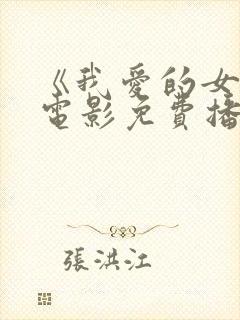 《我愛的女
電影免費播
張洪江